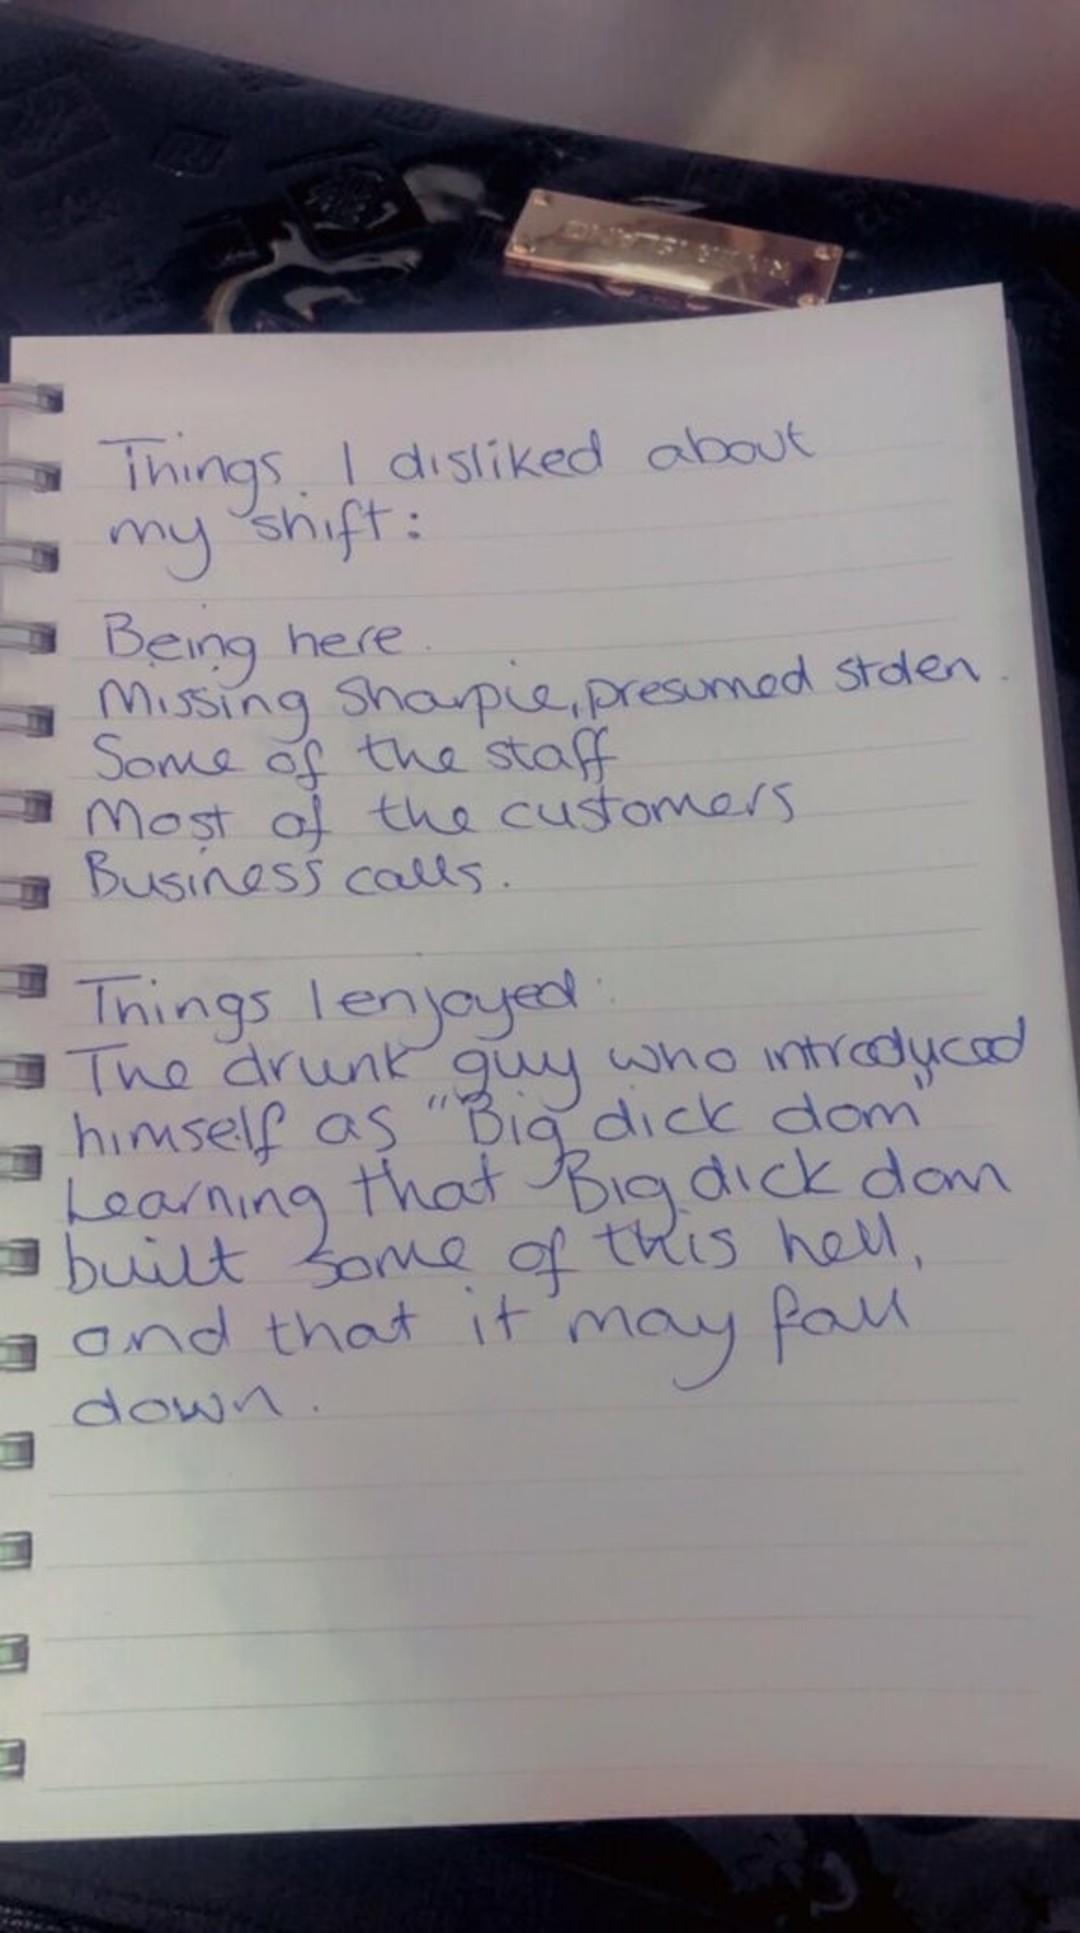 Things I disliked about
my shift:
Being here.
Missing Sharpie, presumed stolen.
Some of the staff
Most of the customers
Business calls.
Things I enjoyed:
The drunk guy who introduced
himself as "Big dick dom"
Learning that Big dick dom
built some of this hell,
and that it may fall
down.